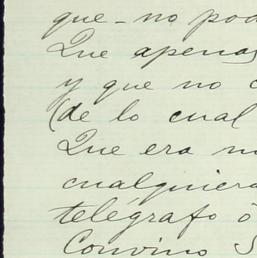 que - no pod
Que apenas
y que no c
(de lo cual
Que era m
cualquiera
telégrafo ó
Convino S